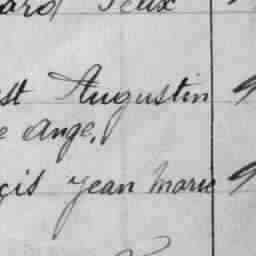 ard Jeux
st Augustin
e Ange,
çis Jean Marie